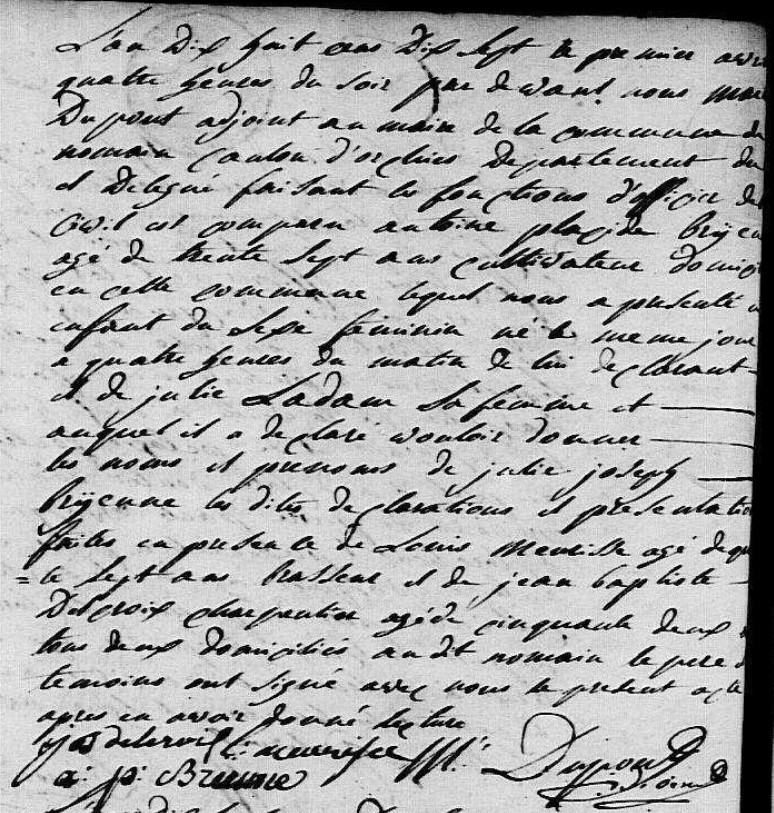 L'an Dix huit cens Dix Sept le premier avri
quatre heures du soir par devant nous
Dupont adjoint au maire de la commune de
nomain canton d'orchies Departement du
et Delegué faisant les fonctions d'officier de
civil est comparu antoine placide Brÿen
agé de trente sept ans cultivateur domici
en cette commune lequel nous a presenté u
enfant du sexe feminin né le meme jour
a quatre heures du matin de lui declarant
et de julie Ladam sa femme et
auquel il a declaré vouloir donner
les noms et prenoms de julie joseph
Brÿenne les dites declarations et presentatio
faites en presence de Louis Meurisse agé de qu
= te sept ans brasseur et de jean baptiste
Delcroix charpentier agé de cinquante deux
tous deux domiciliés audit nomain le pere
temoins ont signé avec nous le present acte
apres en avoir donné lecture
meurisse Dupont